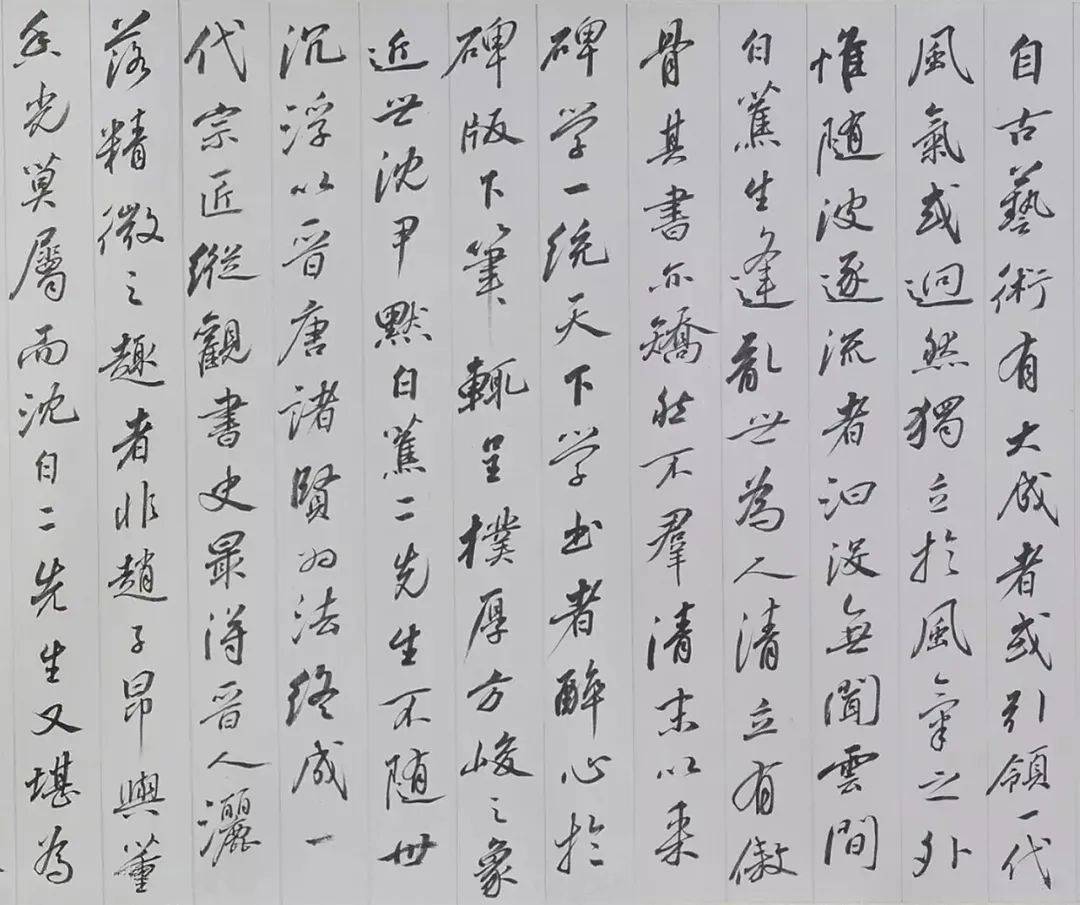 自古藝術有大成者或引領一代
風氣或迥然獨立於風氣之外
惟随波逐流者汩没無聞雲間
白蕉生逢亂世為人清立有傲
骨其書亦矯然不羣清末以来
碑学一统天下学书者醉心於
碑版下筆輒呈樸厚方峻之象
近世沈尹默白蕉二先生不随世
沉浮以晋唐諸賢为法终成一
代宗匠縱觀書史最得晋人灑
落精微之趣者非趙子昂與董
香光莫屬而沈白二先生又堪為